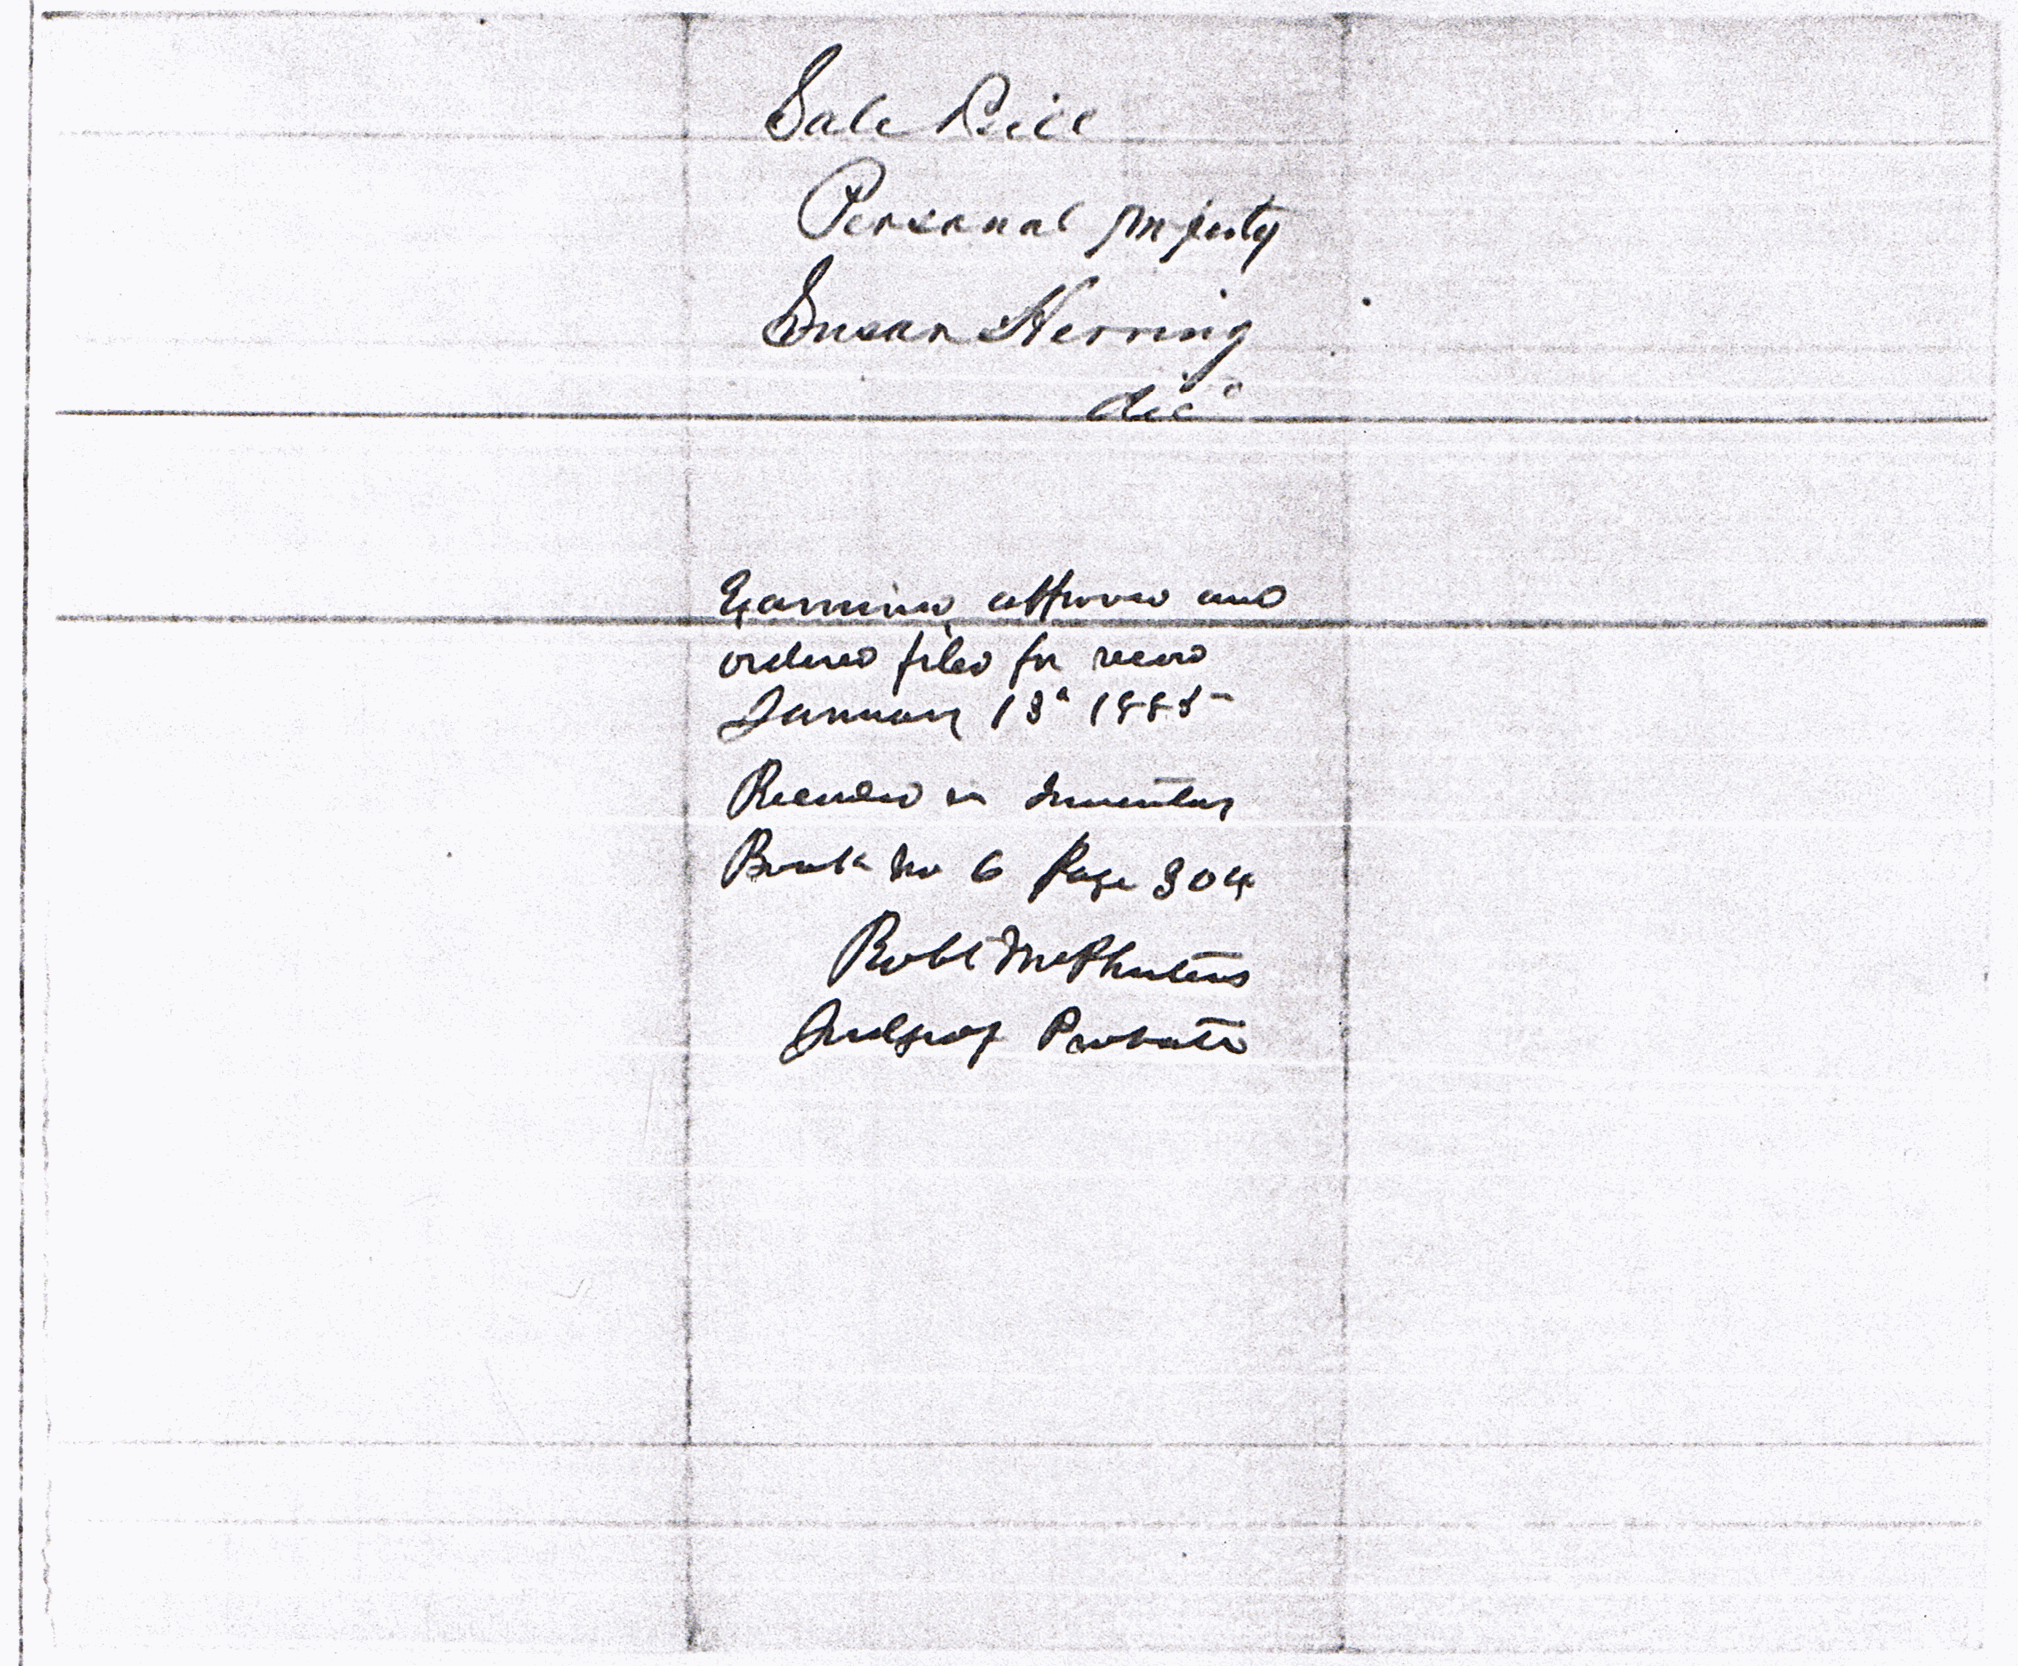 Sale Bill
Personal property
Susan Herring
decd
Examined approved and
ordered filed for record
January 13th 1885
Recorded in Inventory
Book No 6 Page 304
Robt
Judge of Probate